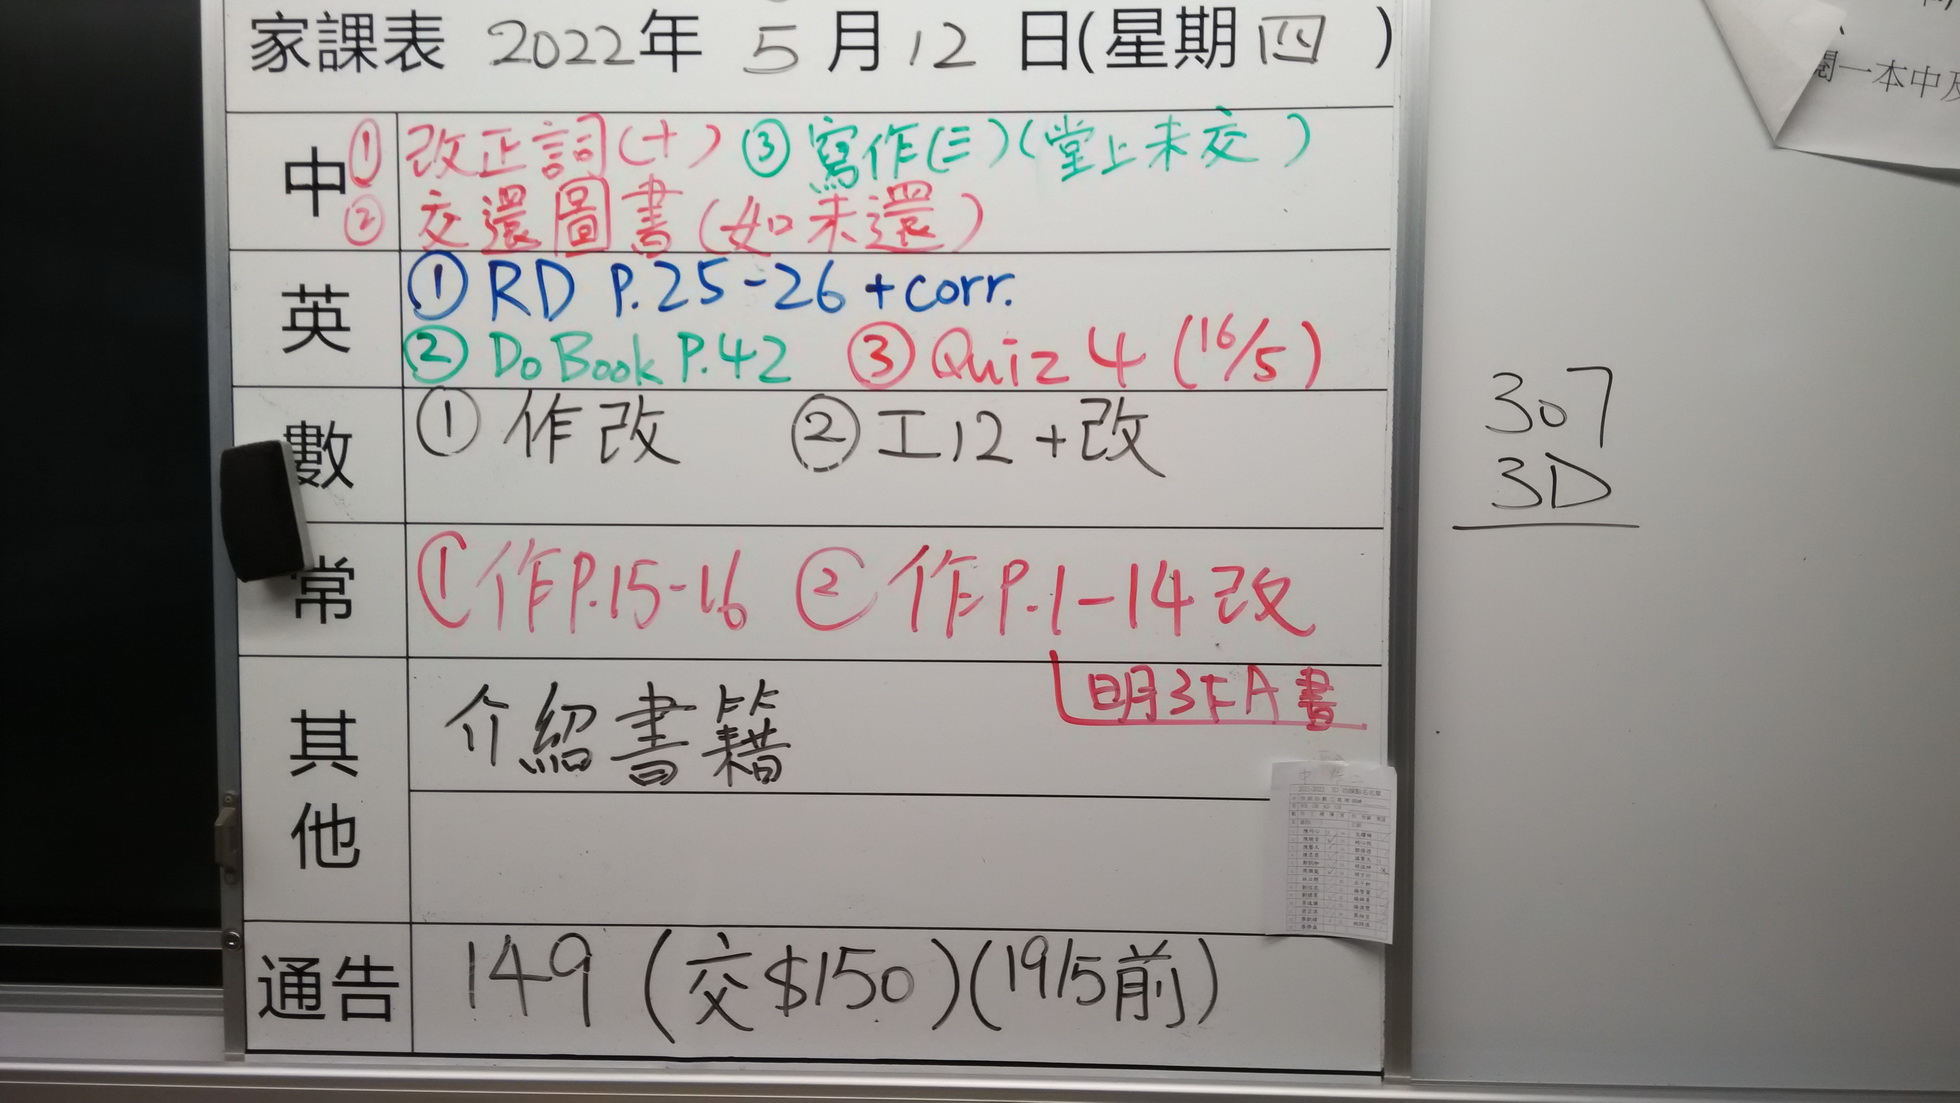 家課表 2022年 5月12日(星期四)
中 ① 改正詞(十) ③ 寫作(三)(堂上未交)
② 交還圖書(如未還)
英 ① RD P.25-26 +corr.
② Do Book P.42 ③ Quiz 4 (16/5)
數 ① 作改 ② 工12+改
常 ① 作P.15-16 ② 作P.1-14改
明3FA書
其他 介紹書籍
通告 149 (交$150)(19/5前)
307
3D
一本中及